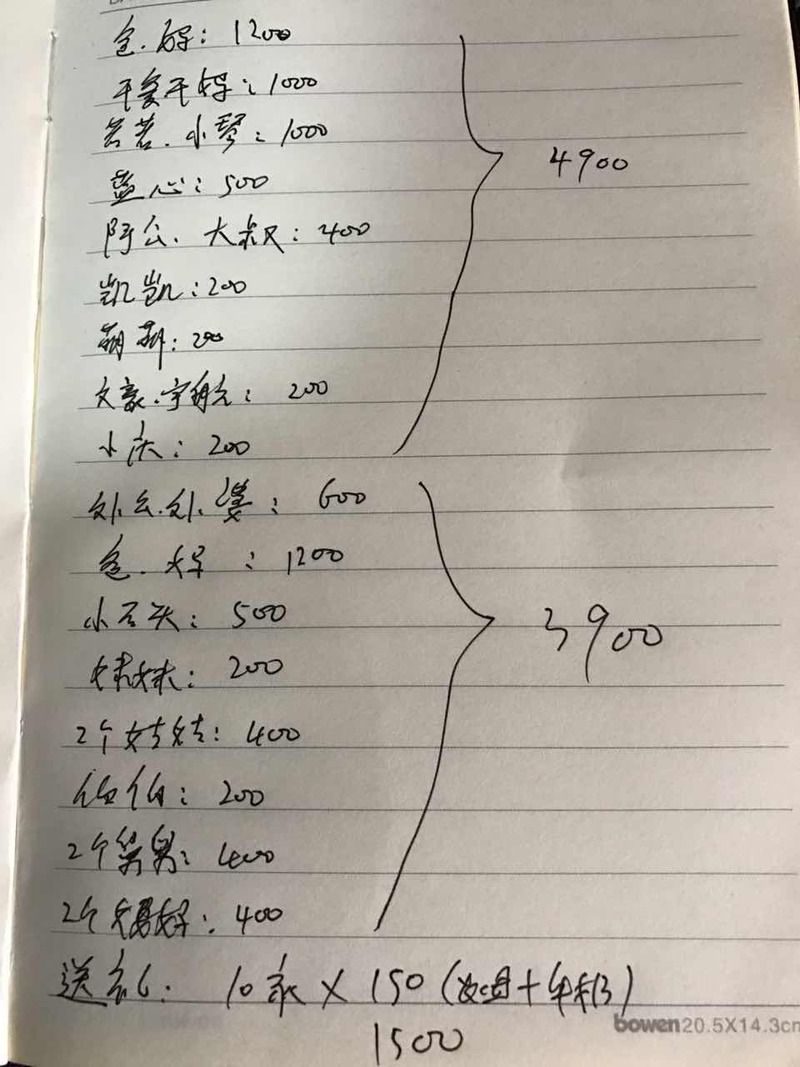 爸.妈: 1200
干爹干妈: 1000
芸芸.小琴: 1000
蓝心: 500
阿公.大叔: 400
凯凯: 200
萌萌: 200
文豪.宇航: 200
小庆: 200
4900
外公.外婆: 600
爸.妈: 1200
小石头: 500
妹妹: 200
2个姑姑: 400
伯伯: 200
2个舅舅: 400
2个舅妈: 400
3900
送礼: 10家 × 150 (烟+年糕)
1500
bowen 20.5X14.3cm